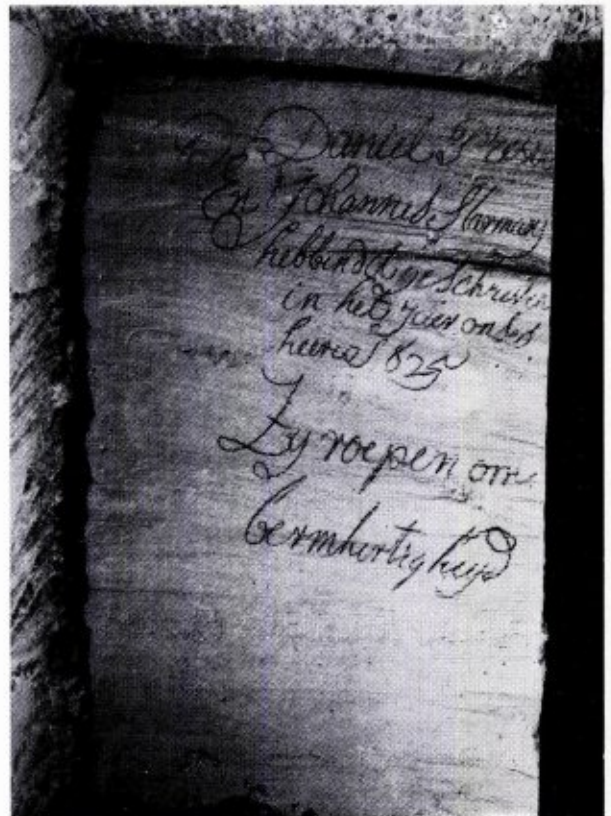 Daniel
En Johannes Harmanz
hebben dit geschreven
in het yaer ons
heeren 1825
Zy roepen om
bermhertigheyd